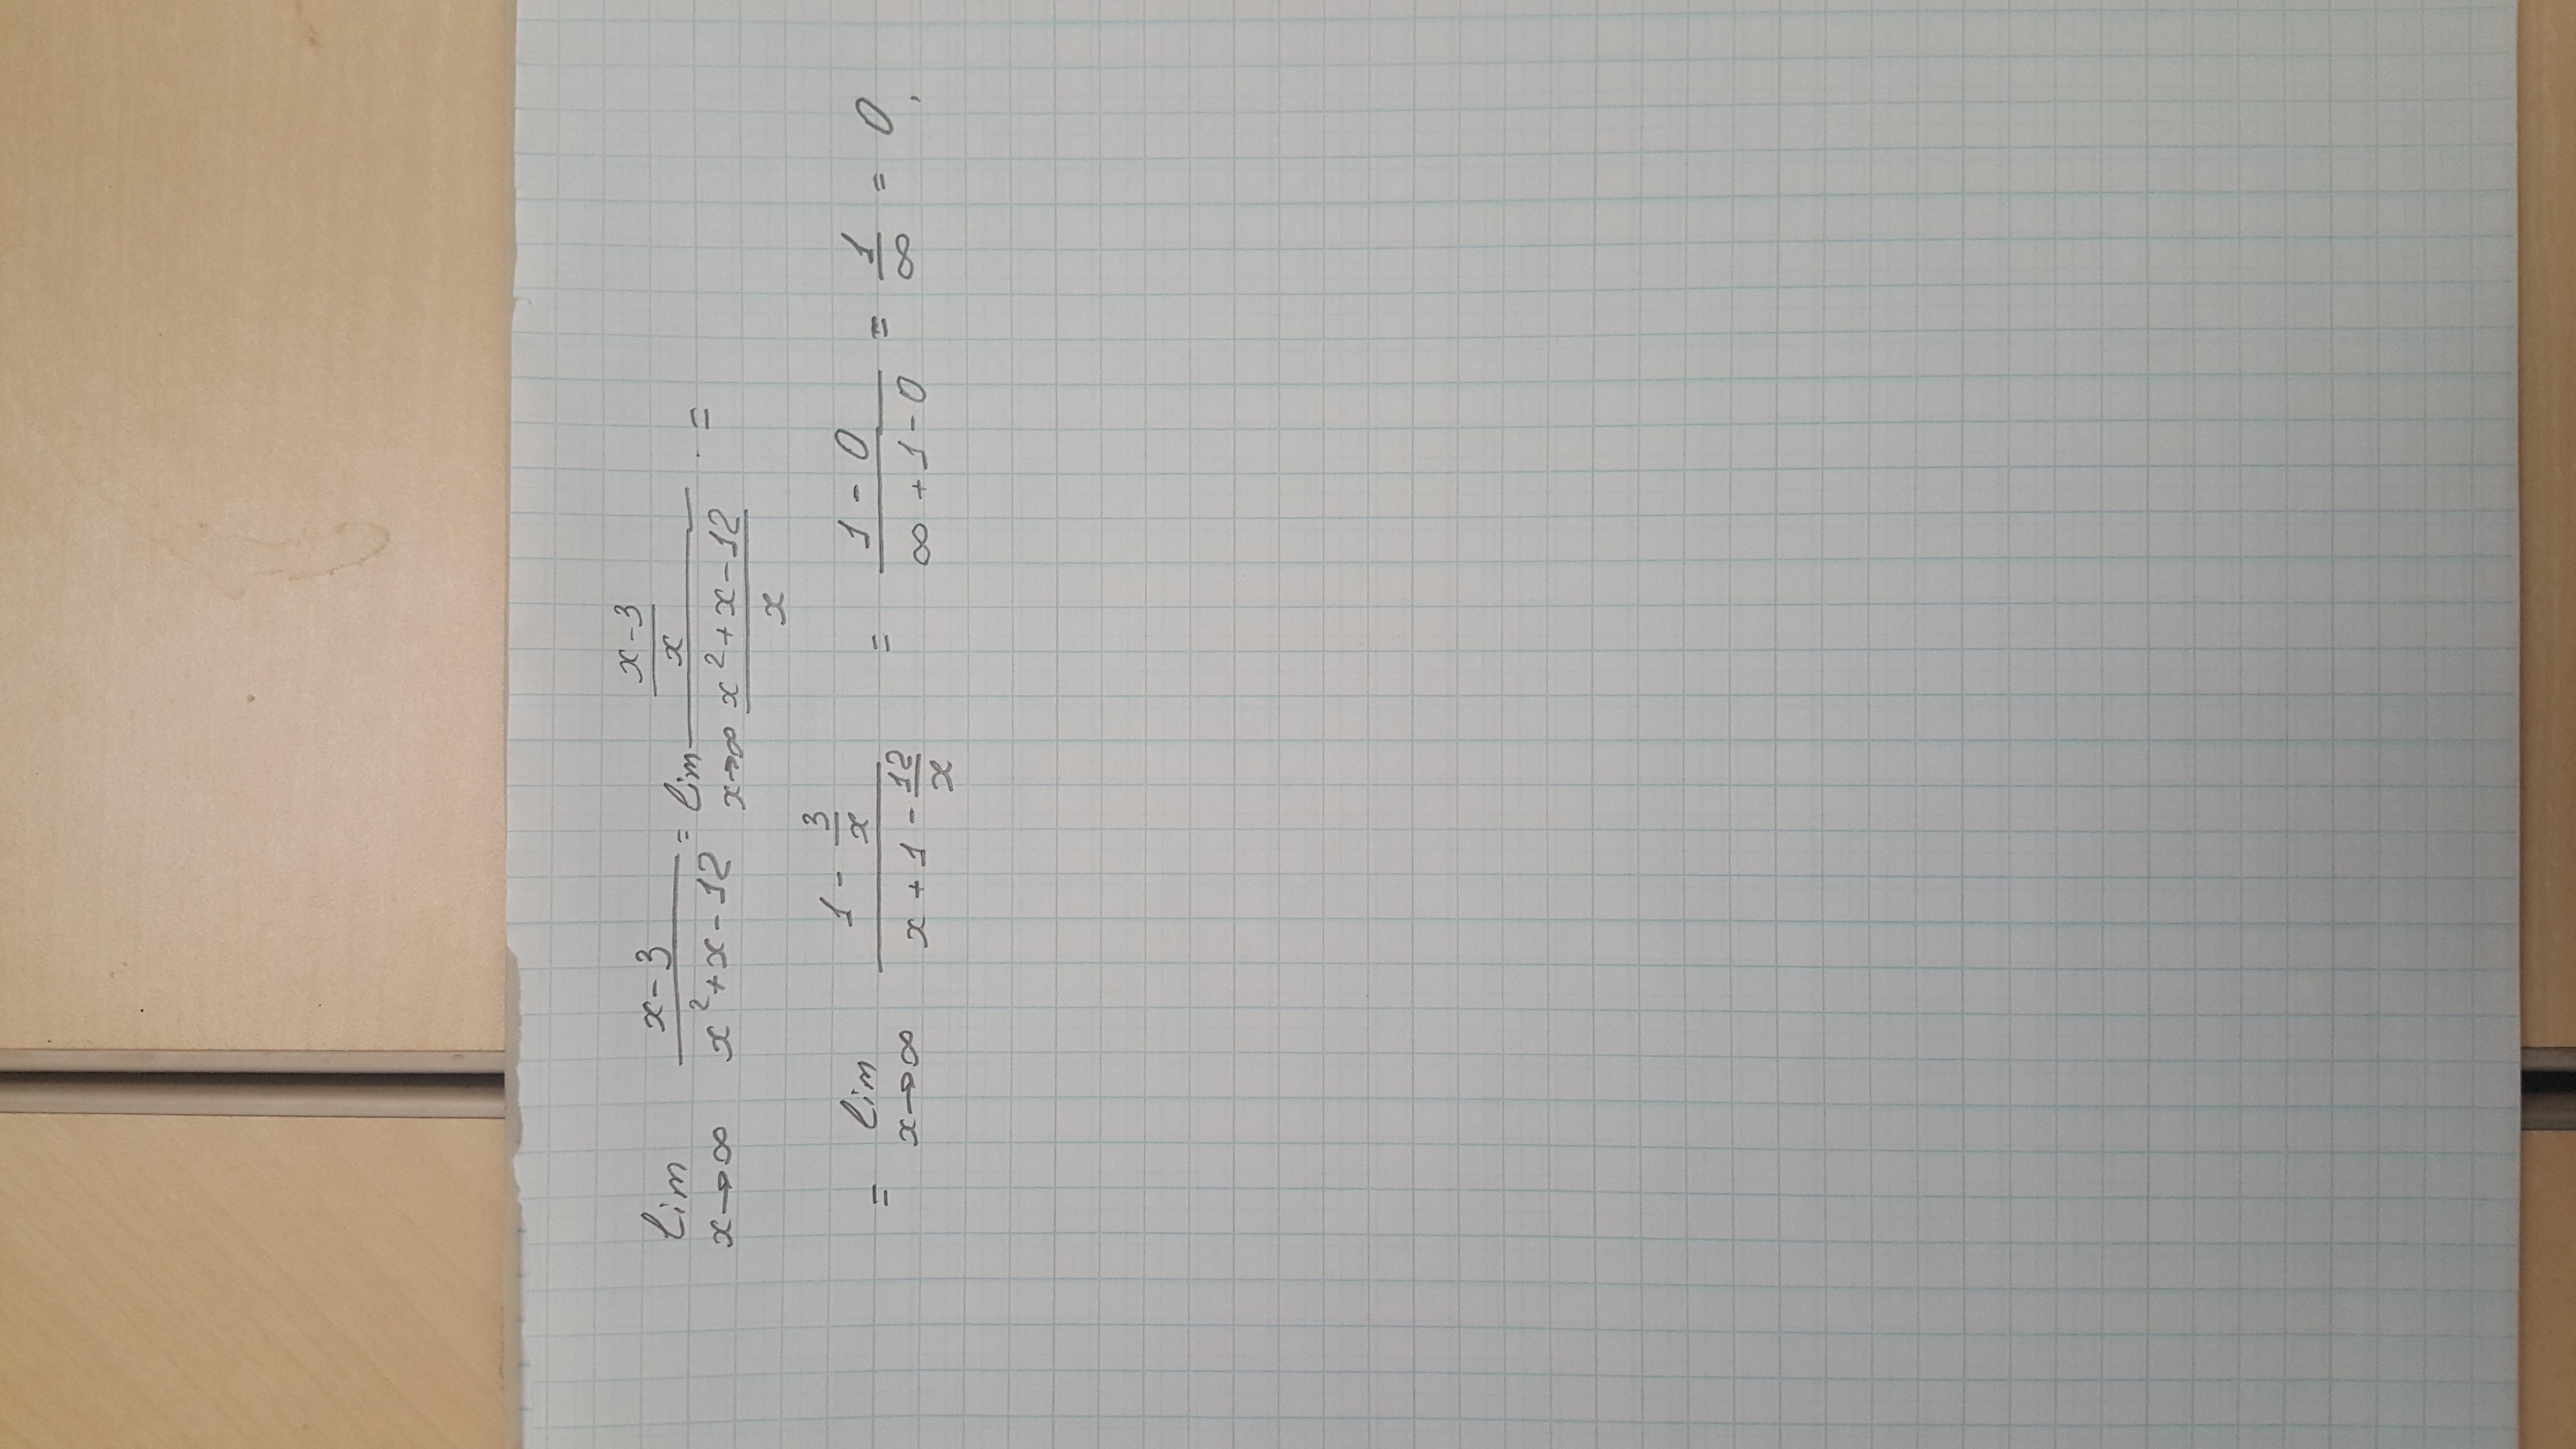 lim x→∞ (x-3)/(x²+x-12) = lim x→∞ ((x-3)/x)/((x²+x-12)/x) =
= lim x→∞ (1 - 3/x)/(x+1-12/x) = (1-0)/(∞+1-0) = 1/∞ = 0.